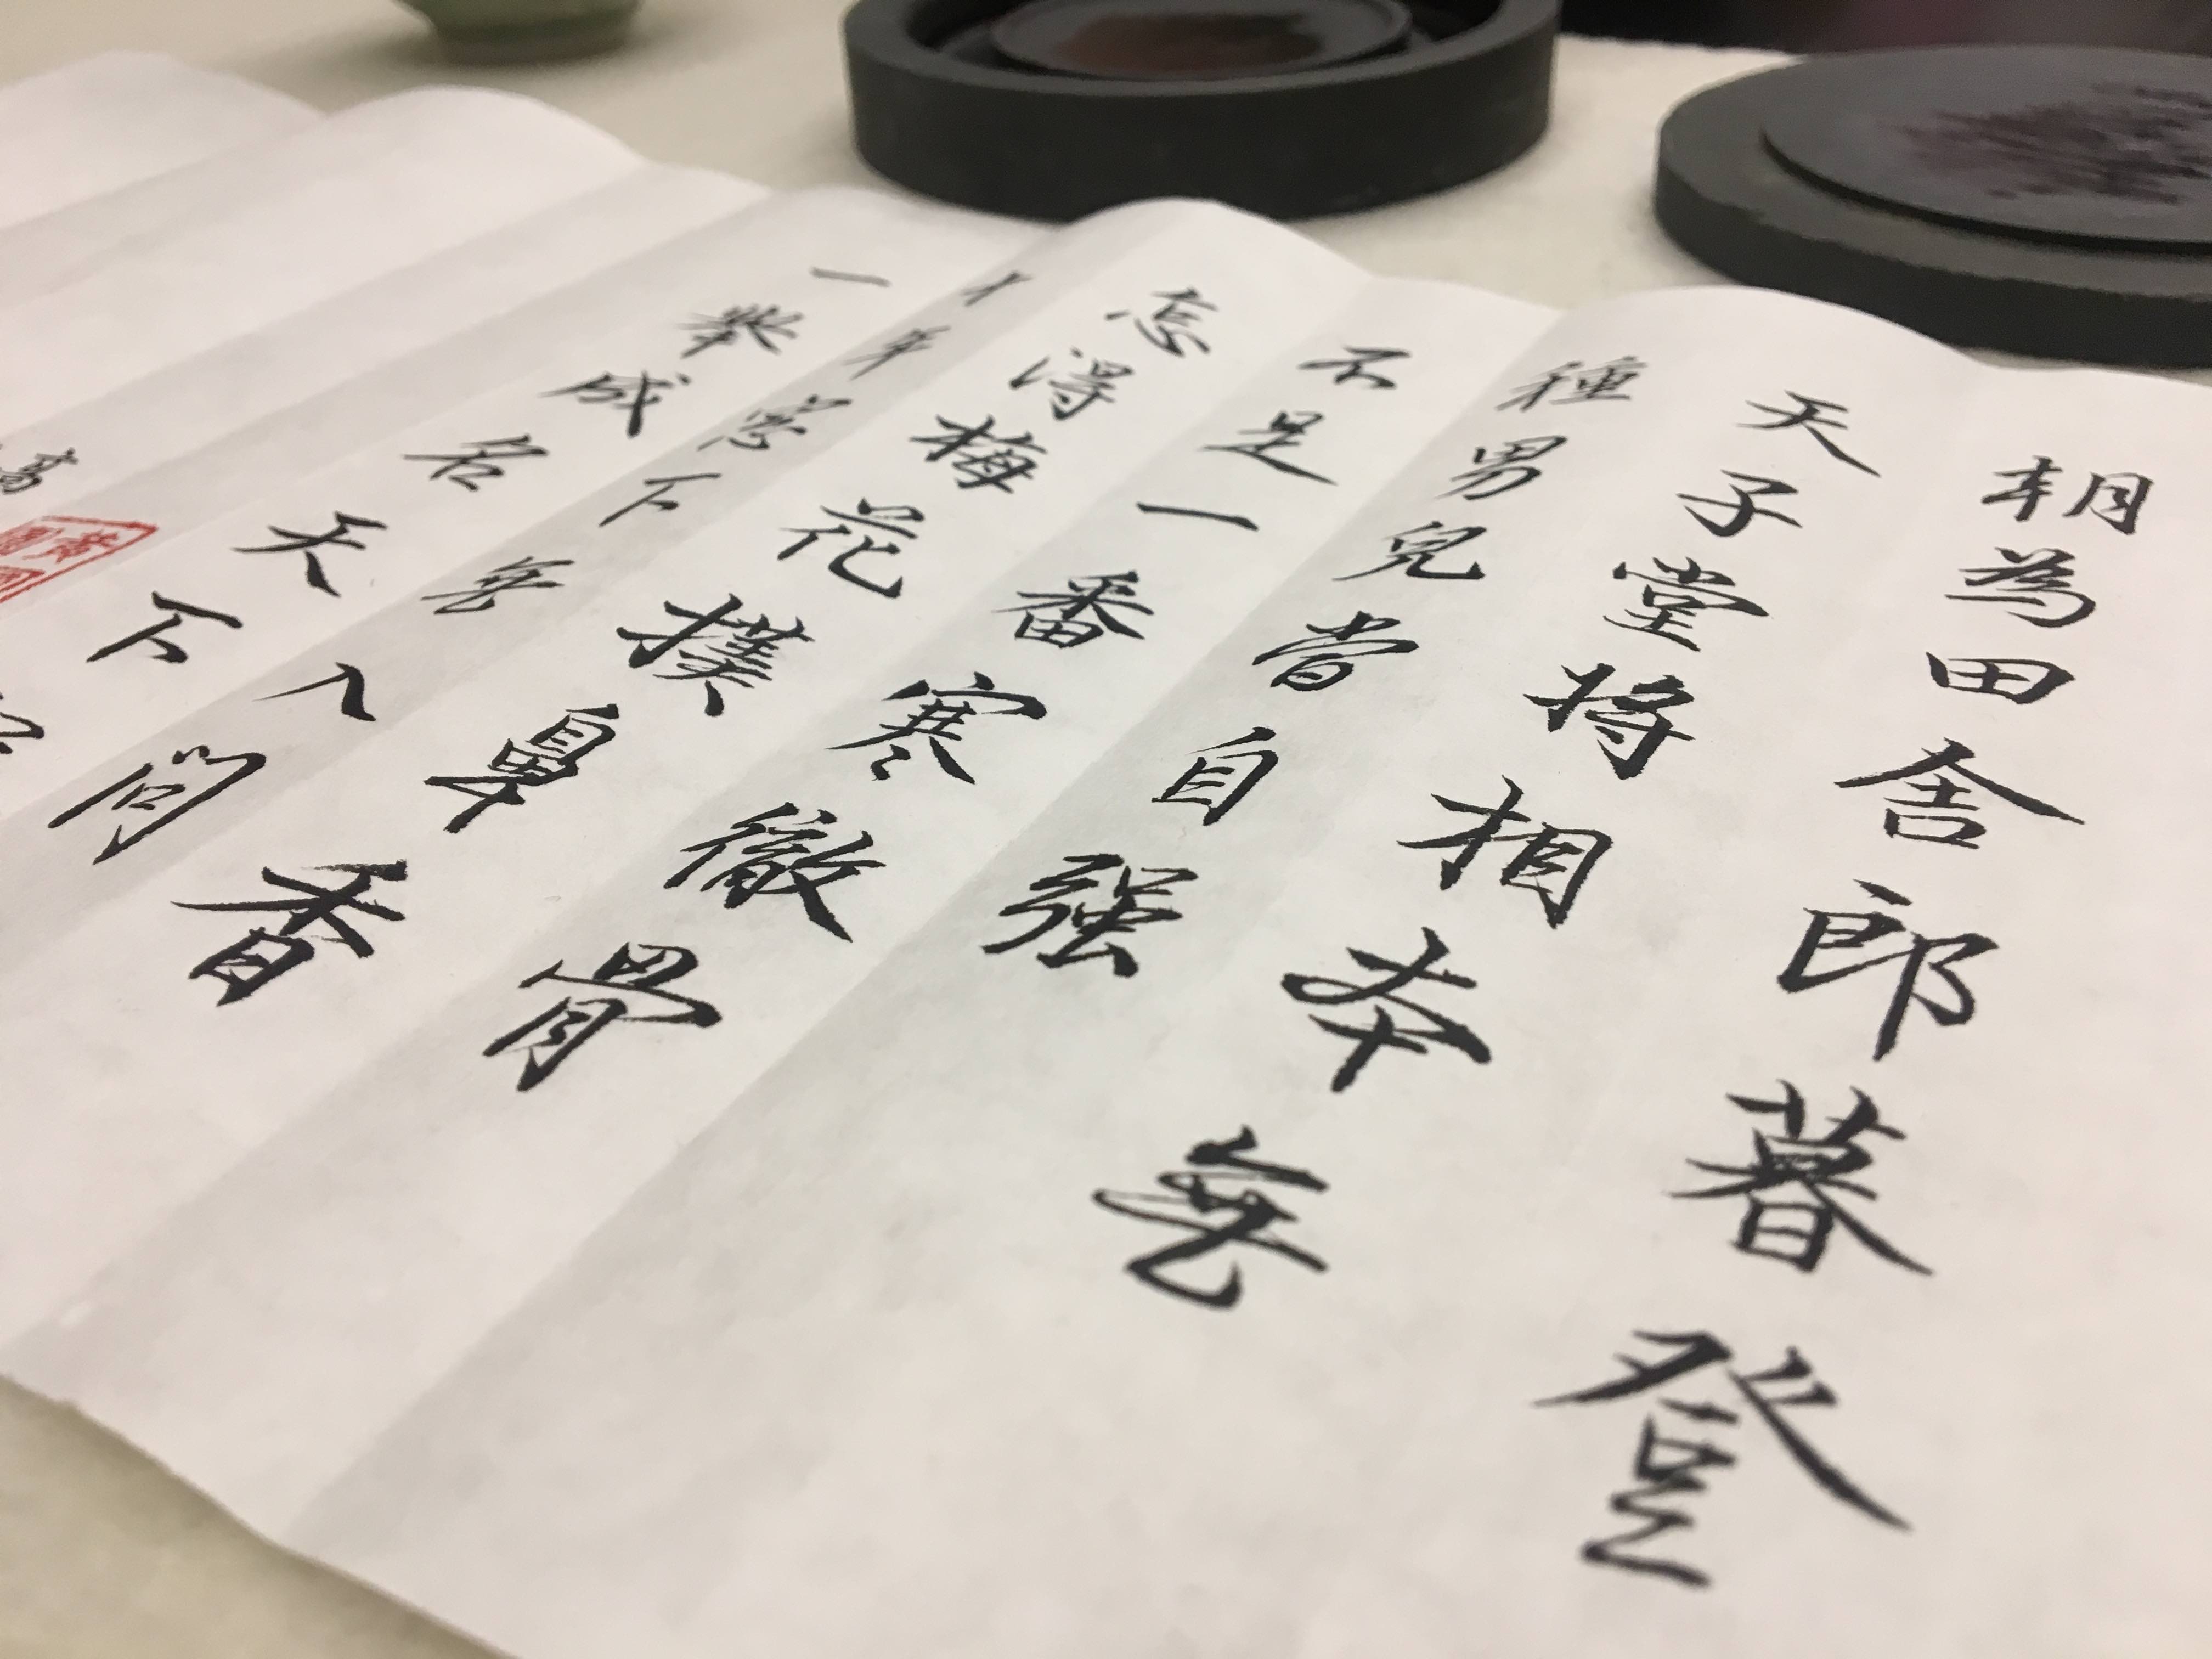 朝為田舍郎暮登
天子堂將相本無
種男兒當自强
不是一番寒徹骨
怎得梅花撲鼻香
十年窓下無人問
一舉成名天下